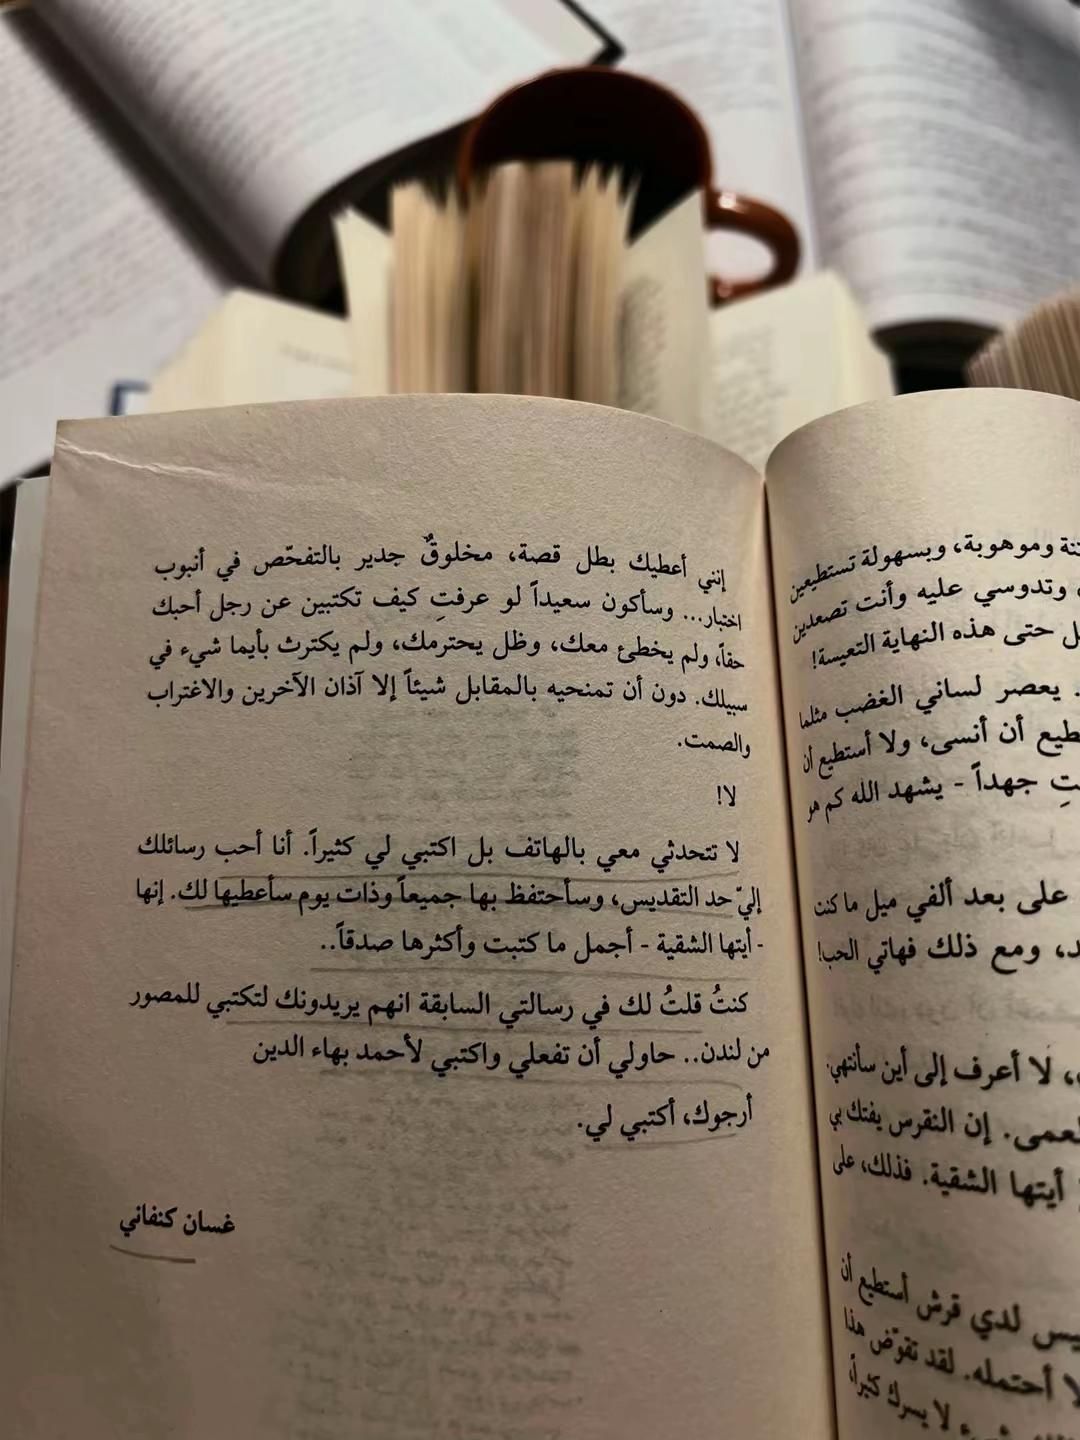 تنة وموهوبة، وبسهولة تستطيعين
وتدوسي عليه وأنت تصعدين
ل حتى هذه النهاية التعيسة!
يعصر لساني الغضب مثلما
طيع أن أنسى، ولا أستطيع أن
تِ جهداً - يشهد الله كم هو
على بعد ألفي ميل ما كنت
د، ومع ذلك فهاتي الحب!
لا أعرف إلى أين سأنتهي.
لعمى. إن النقرس يفتك بي
أيتها الشقية. فذلك، على
يس لدي قرش أستطيع أن
لا أحتمله. لقد تقوّض هذا
لا يسرك كثيراً،
إنني أعطيك بطل قصة، مخلوقٌ جدير بالتفحّص في أنبوب
اختبار... وسأكون سعيداً لو عرفتِ كيف تكتبين عن رجل أحبك
حقاً، ولم يخطئ معك، وظل يحترمك، ولم يكترث بأيما شيء في
سبيلك. دون أن تمنحيه بالمقابل شيئاً إلا آذان الآخرين والاغتراب
والصمت.
لا!
لا تتحدثي معي بالهاتف بل اكتبي لي كثيراً. أنا أحب رسائلك
إليّ حد التقديس، وسأحتفظ بها جميعاً وذات يوم سأعطيها لك. إنها
- أيتها الشقية - أجمل ما كتبت وأكثرها صدقاً..
كنتُ قلتُ لك في رسالتي السابقة انهم يريدونك لتكتبي للمصور
من لندن.. حاولي أن تفعلي واكتبي لأحمد بهاء الدين
أرجوك، أكتبي لي.
غسان كنفاني